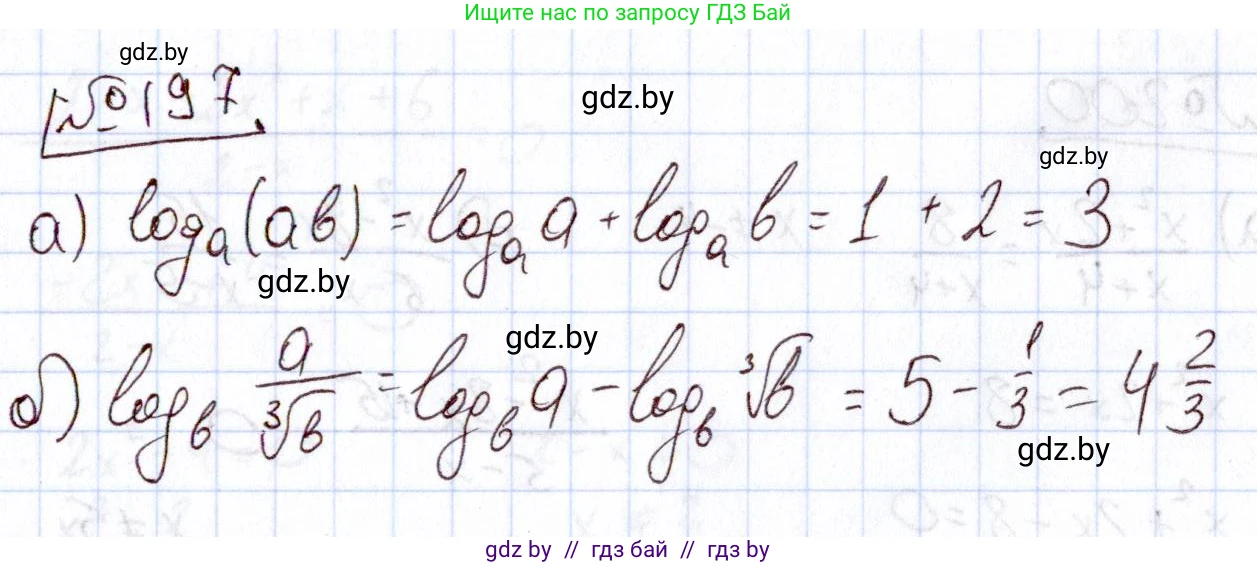 Ищите нас по запросу ГДЗ Бай
gdz.by
№197
gdz.by
gdz.by
а) logₐ(ab) = logₐ a + logₐ b = 1 + 2 = 3
gdz.by
gdz.by
б) log_b a/∛b = log_b a − log_b ∛b = 5 − 1/3 = 4 2/3
gdz.by
gdz by // гдз бай // гдз by